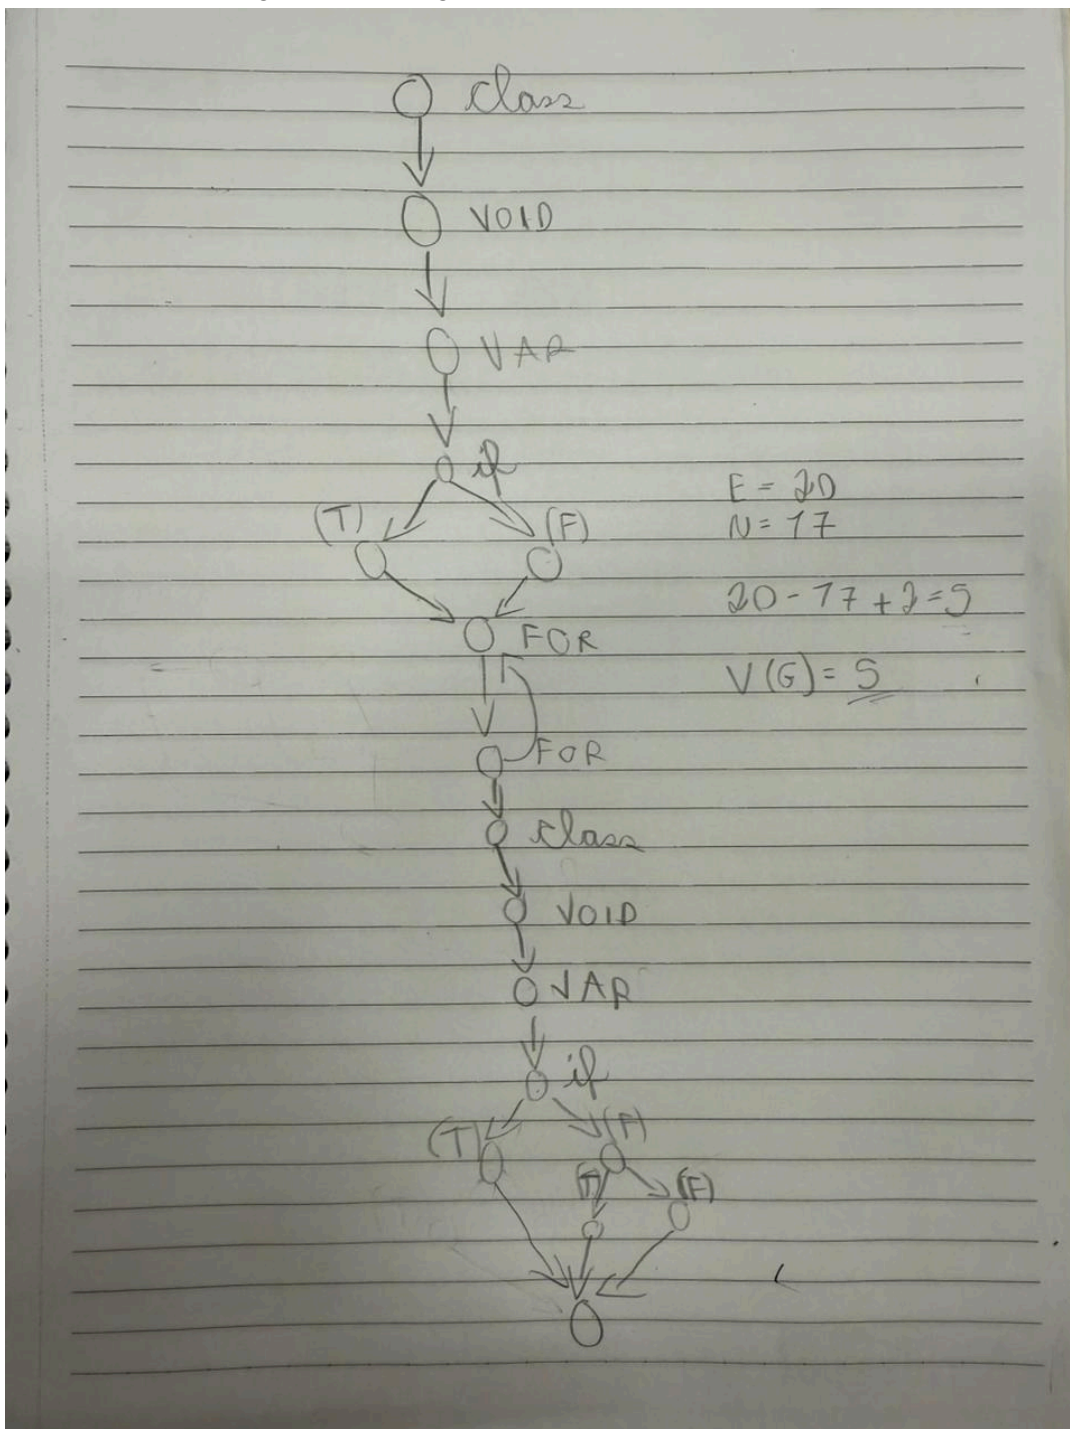 class
VOID
VAR
if
(T) (F)
FOR
FOR
class
VOID
VAR
if
(T) (F)
(T) (F)
E = 20
N = 17
20 - 17 + 2 = 5
V(G) = 5